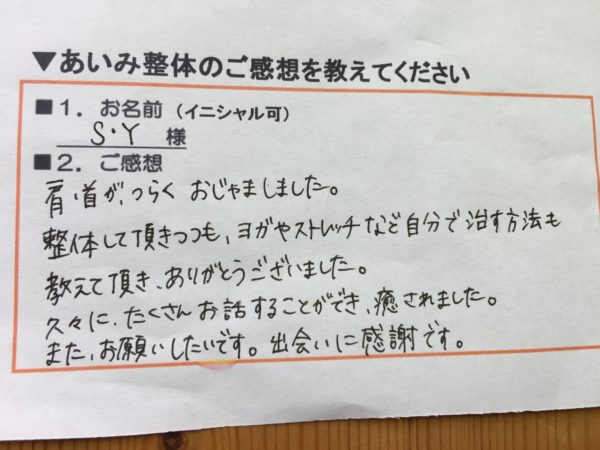 ▼あいみ整体のご感想を教えてください
■1. お名前（イニシャル可）
S・Y 様
■2. ご感想
肩・首が、つらく おじゃましました。
整体して頂きつつも、ヨガやストレッチなど自分で治す方法も
教えて頂き、ありがとうございました。
久々に、たくさんお話することができ、癒されました。
また、お願いしたいです。出会いに感謝です。